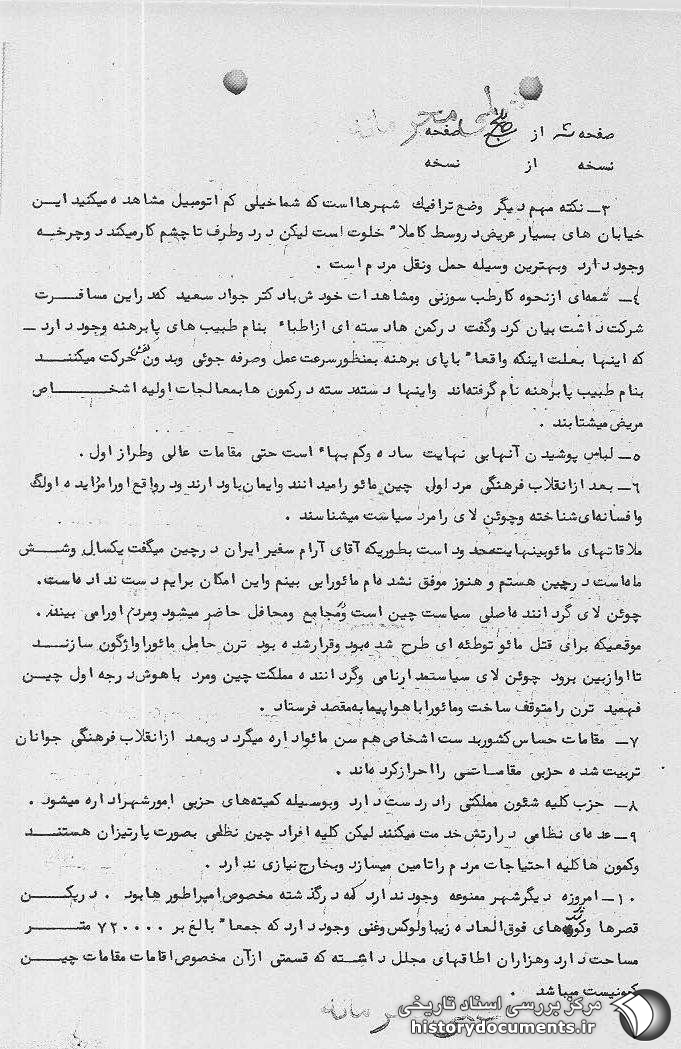 خیلی محرمانه
صفحه سه از پنج صفحه
نسخه از نسخه
۳ــ نکته مهم دیگر وضع ترافیک شهرها است که شما خیلی کم اتومبیل مشاهده میکنید این
خیابان های بسیار عریض در وسط کاملاً خلوت است لیکن در دو طرف تا چشم کار میکند دوچرخه
وجود دارد و بهترین وسیله حمل ونقل مردم است .
٤ــ شمه‌ای از نحوه کار طب سوزنی ومشاهدات خودش با دکتر جواد سعید که در این مسافرت
شرکت داشت بیان کرد وگفت در کمن ها دسته ای از اطباء بنام طبیب های پابرهنه وجود دارد ــ
که اینها بعلت اینکه واقعاً با پای برهنه بمنظور سرعت عمل وصرفه جوئی وبدون کفش حرکت میکنند
بنام طبیب پابرهنه نام گرفته‌اند واینها دسته دسته در کمون ها بمعالجات اولیه اشخاص
مریض میشتابند .
۵ــ لباس پوشیدن آنها بی نهایت ساده وکم بهاء است حتی مقامات عالی وطراز اول .
۶ــ بعد از انقلاب فرهنگی مرد اول چین مائو را میدانند وایمان باو دارند و در واقع او را مزایده اولگ
وافسانه‌ای شناخته وچوئن لای را مرد سیاست میشناسند .
ملاقاتهای مائو بینهایت محدود است بطوریکه آقای آرام سفیر ایران در چین میگفت یکسال وشش
ماه است در چین هستم و هنوز موفق نشده‌ام مائو را بی بینم واین امکان برایم دست نداده است.
چوئن لای گرداننده اصلی سیاست چین است ودر مجامع ومحافل حاضر میشود ومردم او را می بینند.
موقعیکه برای قتل مائو توطئه ای طرح شده بود وقرار شده بود ترن حامل مائو را واژگون سازند
تا او از بین برود چوئن لای سیاستمدار نامی وگرداننده مملکت چین ومرد باهوش درجه اول چین
فهمید ترن را متوقف ساخت ومائو را با هواپیما به مقصد فرستاد .
۷ــ مقامات حساس کشور بدست اشخاص هم سن مائو اداره میگردد وبعد از انقلاب فرهنگی جوانان
تربیت شده حزبی مقاماتی را احراز کرده‌اند .
۸ــ حزب کلیه شئون مملکتی را در دست دارد وبوسیله کمیته‌های حزبی امور شهر اداره میشود .
۹ــ عده‌ای نظامی در ارتش خدمت میکنند لیکن کلیه افراد چین نظامی بصورت پارتیزان هستند
وکمون ها کلیه احتیاجات مردم را تامین میسازد وبخارج نیازی ندارد .
۱۰ــ امروزه دیگر شهر ممنوعه وجود ندارد که در گذشته مخصوص امپراطورها بود . در پکن
قصرها و های فوق العاده زیبا ولوکس وغنی وجود دارد که جمعاً بالغ بر ۷۲۰۰۰۰ متر
مساحت دارد وهزاران اطاقهای مجلل داشته که قسمتی از آن مخصوص اقامات مقامات چین
کمونیست میباشد .
خیلی محرمانه
مرکز بررسی اسناد تاریخی
historydocuments.ir